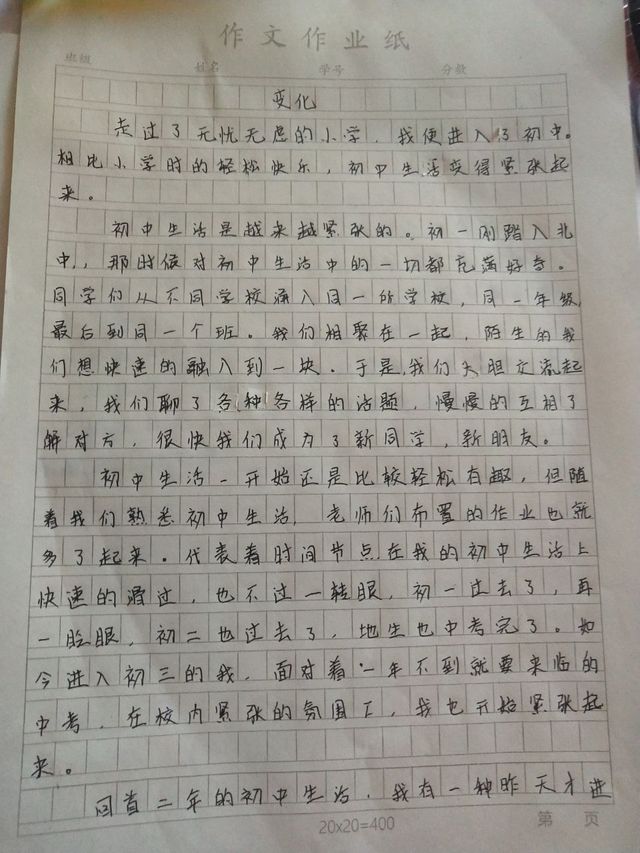 作文作业纸
班级 姓名 学号 分数
变化
走过了无忧无虑的小学，我便进入了初中。
相比小学时的轻松快乐，初中生活变得紧张起
来。
初中生活是越来越紧张的。初一刚踏入北
中，那时候对初中生活中的一切都充满好奇。
同学们从不同学校涌入同一的学校，同一年级，
最后到同一个班。我们相聚在一起，陌生的我
们想快速的融入到一块．于是，我们大胆交流起
来，我们聊了各种各样的话题，慢慢的互相了
解对方，很快我们成为了新同学，新朋友。
初中生活一开始还是比较轻松有趣，但随
着我们熟悉初中生活，老师们布置的作业也就
多了起来。代表着时间节点在我的初中生活上
快速的滑过，也不过一转眼，初一过去了，再
一眨眼，初二也过去了，地生也中考完了。如
今进入初三的我，面对着一年不到就要来临的
中考，在校内紧张的氛围下，我也开始紧张起
来。
回首二年的初中生活，我有一种昨天才进
20x20=400
第 页